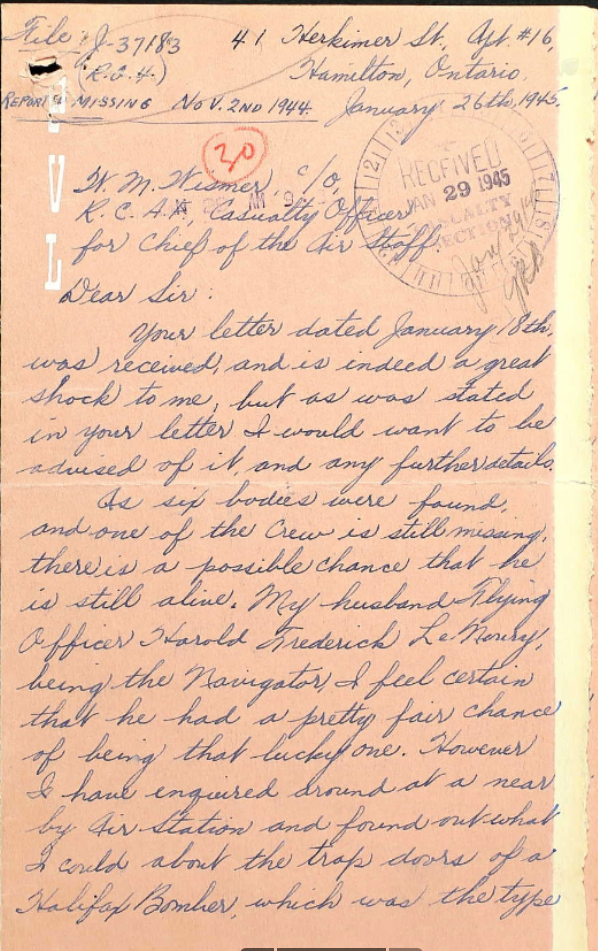 File: J-37183
(R.O.4.)
41 Herkimer St., Apt. #16,
Hamilton, Ontario.
REPORTED MISSING NOV. 2ND 1944.
January 26th, 1945.
30
W. M. Wismer, c/o,
R. C. A. F., Casualty Officer
for Chief of the Air Staff.
RECEIVED
JAN 29 1945
CASUALTY
SECTION
AM 9
VL
Dear Sir:
Your letter dated January 18th,
was received, and is indeed a great
shock to me, but as was stated
in your letter I would want to be
advised of it, and any further details.
As six bodies were found,
and one of the Crew is still missing,
there is a possible chance that he
is still alive. My husband Flying
Officer Harold Frederick LeNeury,
being the Navigator I feel certain
that he had a pretty fair chance
of being that lucky one. However
I have enquired around at a near
by Air Station and found out what
I could about the trap doors of a
Halifax Bomber, which was the type